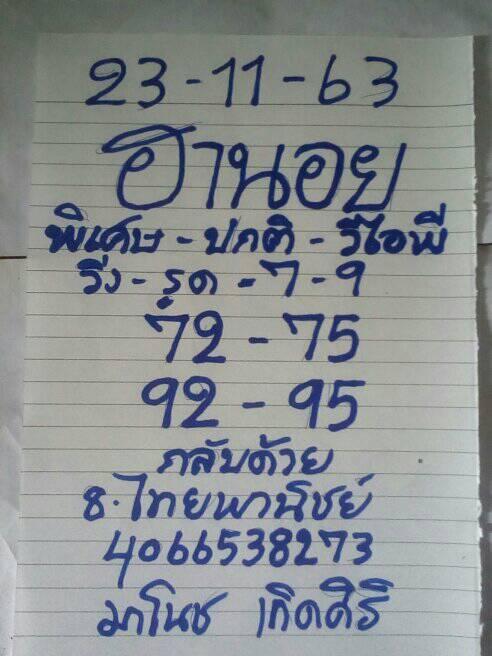 23-11-63
ฮานอย
พิเศษ - ปกติ - วีไอพี
วิ่ง - รูด - 7 - 9
72 - 75
92 - 95
กลับด้วย
ธ.ไทยพานิชย์
4066538273
มาโนช เกิดศิริ